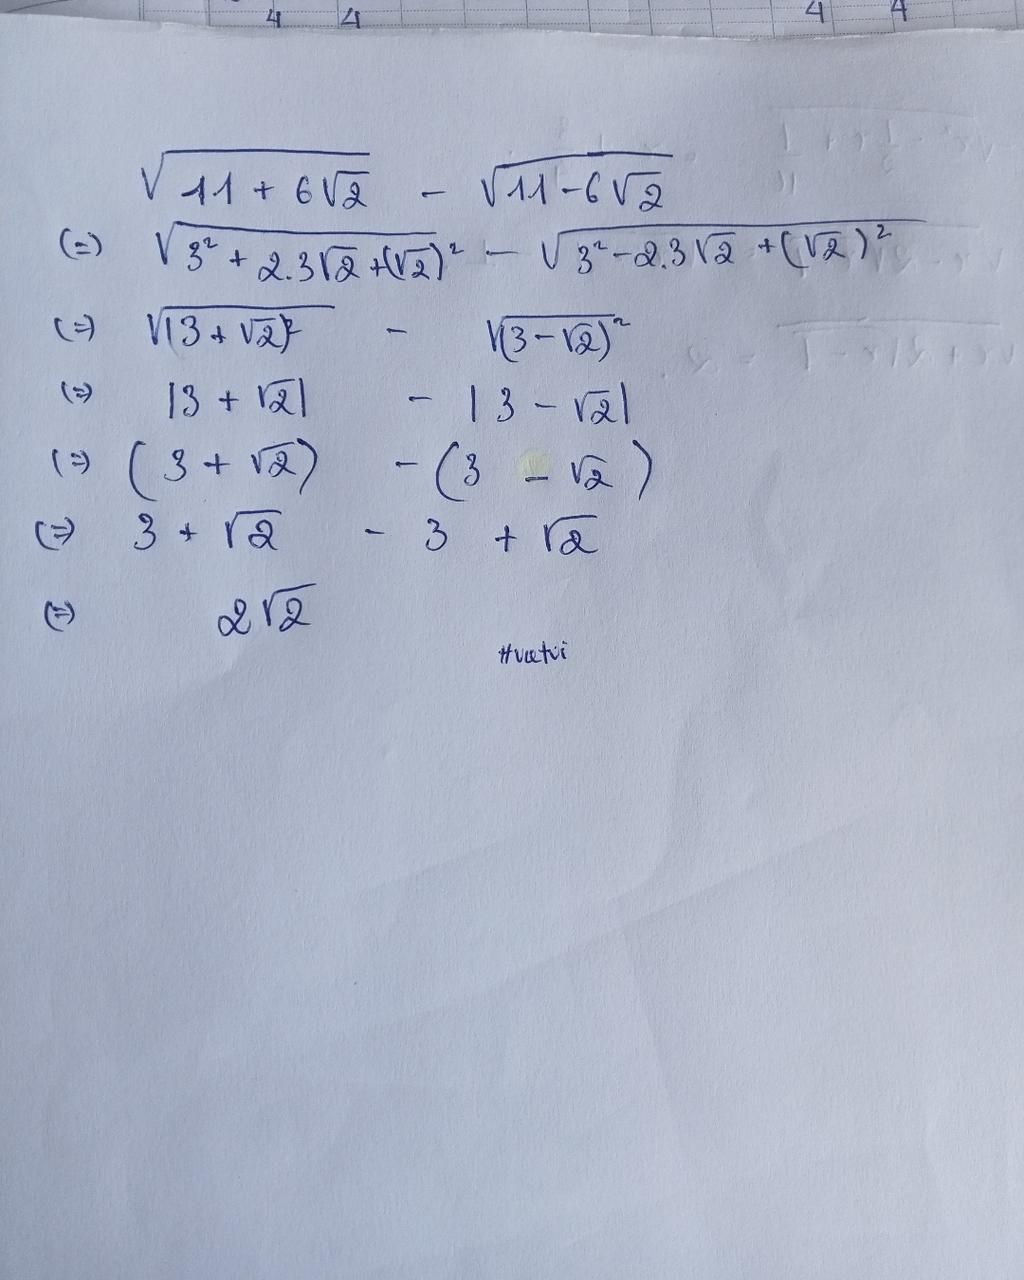 4 4 4 4
√11 + 6√2 - √11-6√2
(=) √3² + 2.3√2 +(√2)² - √3²-2.3√2 +(√2)²
(=) √(3 + √2)² - √(3-√2)²
(=) |3 + √2| - |3 - √2|
(=) (3 + √2) - (3 - √2)
(=) 3 + √2 - 3 + √2
(=) 2√2